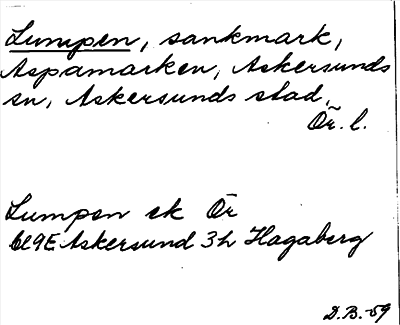 Lumpen, sankmark,
Aspamarken, Askersunds
sn, Askersunds stad,
Ör. l.
Lumpen ek Ör
9E Askersund 3h Hagaberg
D.B.-59